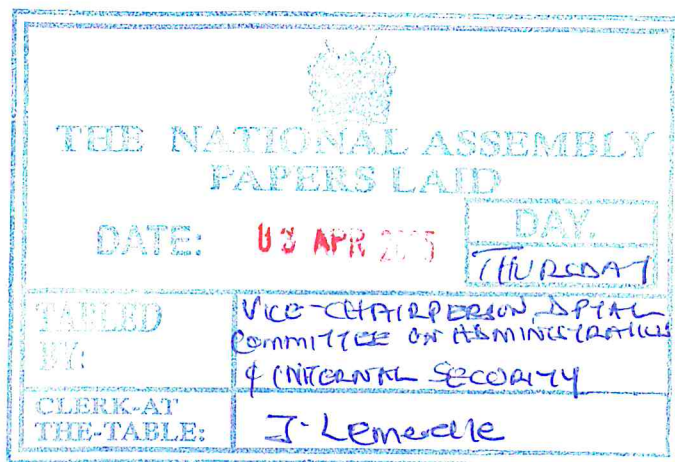 THE NATIONAL ASSEMBLY
PAPERS LAID
DATE: 03 APR 2025
DAY.
THURSDAY
TABLED
BY:
VICE-CHAIRPERSON, DPTAL
COMMITTEE ON ADMINISTRATION
& INTERNAL SECURITY
CLERK-AT
THE-TABLE:
J.